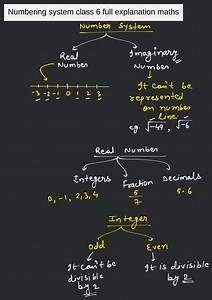 Numbering system class 6 full explanation maths
Number System
Real Number
Imaginary Number
-3 -2 -1 0 1 2 3
It can't be
represented
on number
line
eg. √-49, √-6
Real Number
Integers
Fraction
Decimals
0, -1, 2, 3, 4
5/7
5.6
Integer
Odd
Even
It can't be
divisible
by 2
It is divisible
by 2